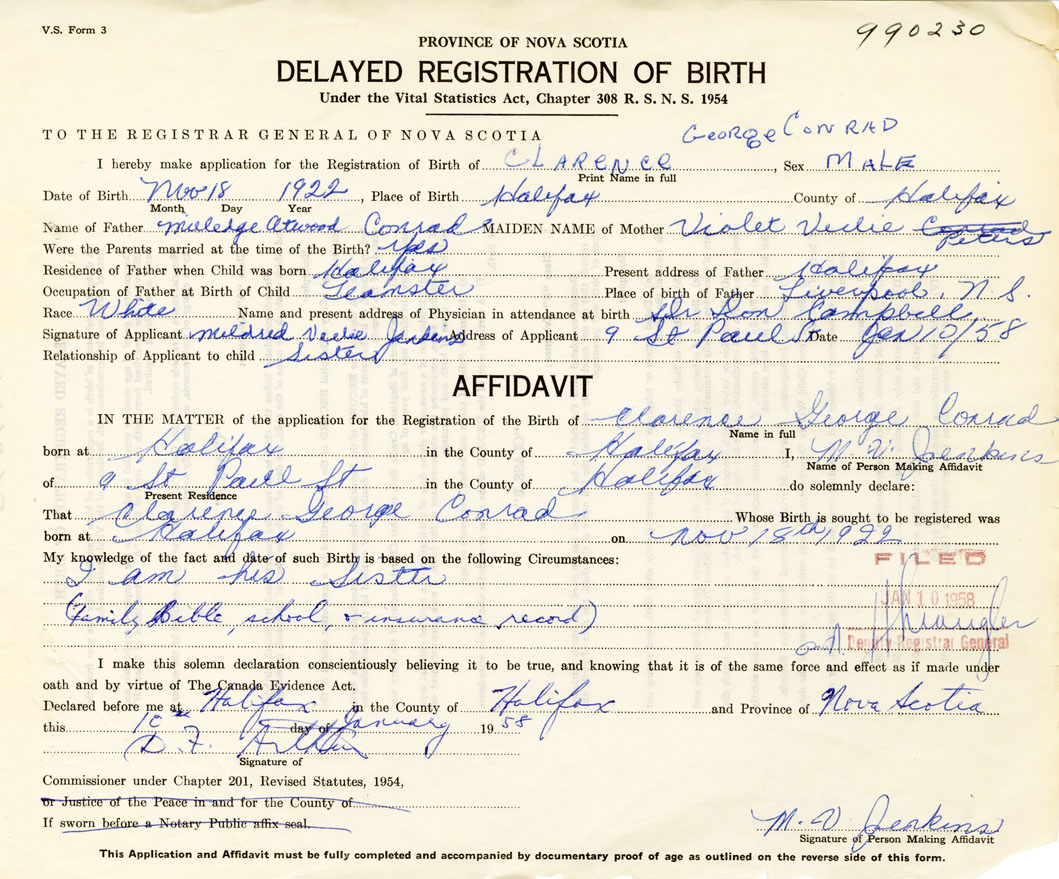 V.S. Form 3
990230
PROVINCE OF NOVA SCOTIA
DELAYED REGISTRATION OF BIRTH
Under the Vital Statistics Act, Chapter 308 R. S. N. S. 1954
TO THE REGISTRAR GENERAL OF NOVA SCOTIA
GEORGE CONRAD
I hereby make application for the Registration of Birth of CLARENCE, Sex MALE
Print Name in full
Date of Birth Nov 18 1922, Place of Birth Halifax County of Halifax
Month Day Year
Name of Father Milledge Atwood Conrad MAIDEN NAME of Mother Violet Verlie Conrad Peters
Were the Parents married at the time of the Birth? Yes
Residence of Father when Child was born Halifax Present address of Father Halifax
Occupation of Father at Birth of Child Teamster Place of birth of Father Liverpool, N.S.
Race White Name and present address of Physician in attendance at birth Dr Ron Campbell
Signature of Applicant Mildred Verlie Jenkins Address of Applicant 9 St Paul St Date Jan 10/58
Relationship of Applicant to child Sister
AFFIDAVIT
IN THE MATTER of the application for the Registration of the Birth of Clarence George Conrad
Name in full
born at Halifax in the County of Halifax I, M. V. Jenkins
Name of Person Making Affidavit
of 9 St Paul St in the County of Halifax do solemnly declare:
Present Residence
That Clarence George Conrad Whose Birth is sought to be registered was
born at Halifax on Nov 18th 1922
My knowledge of the fact and date of such Birth is based on the following Circumstances:
I am his Sister
FILED
JAN 10 1958
(Family Bible, school, & insurance record)
Deputy Registrar General
I make this solemn declaration conscientiously believing it to be true, and knowing that it is of the same force and effect as if made under
oath and by virtue of The Canada Evidence Act.
Declared before me at Halifax in the County of Halifax and Province of Nova Scotia
this 10th day of January 1958
D. F. Arthur
Signature of
Commissioner under Chapter 201, Revised Statutes, 1954,
or Justice of the Peace in and for the County of
If sworn before a Notary Public affix seal.
M. V. Jenkins
Signature of Person Making Affidavit
This Application and Affidavit must be fully completed and accompanied by documentary proof of age as outlined on the reverse side of this form.